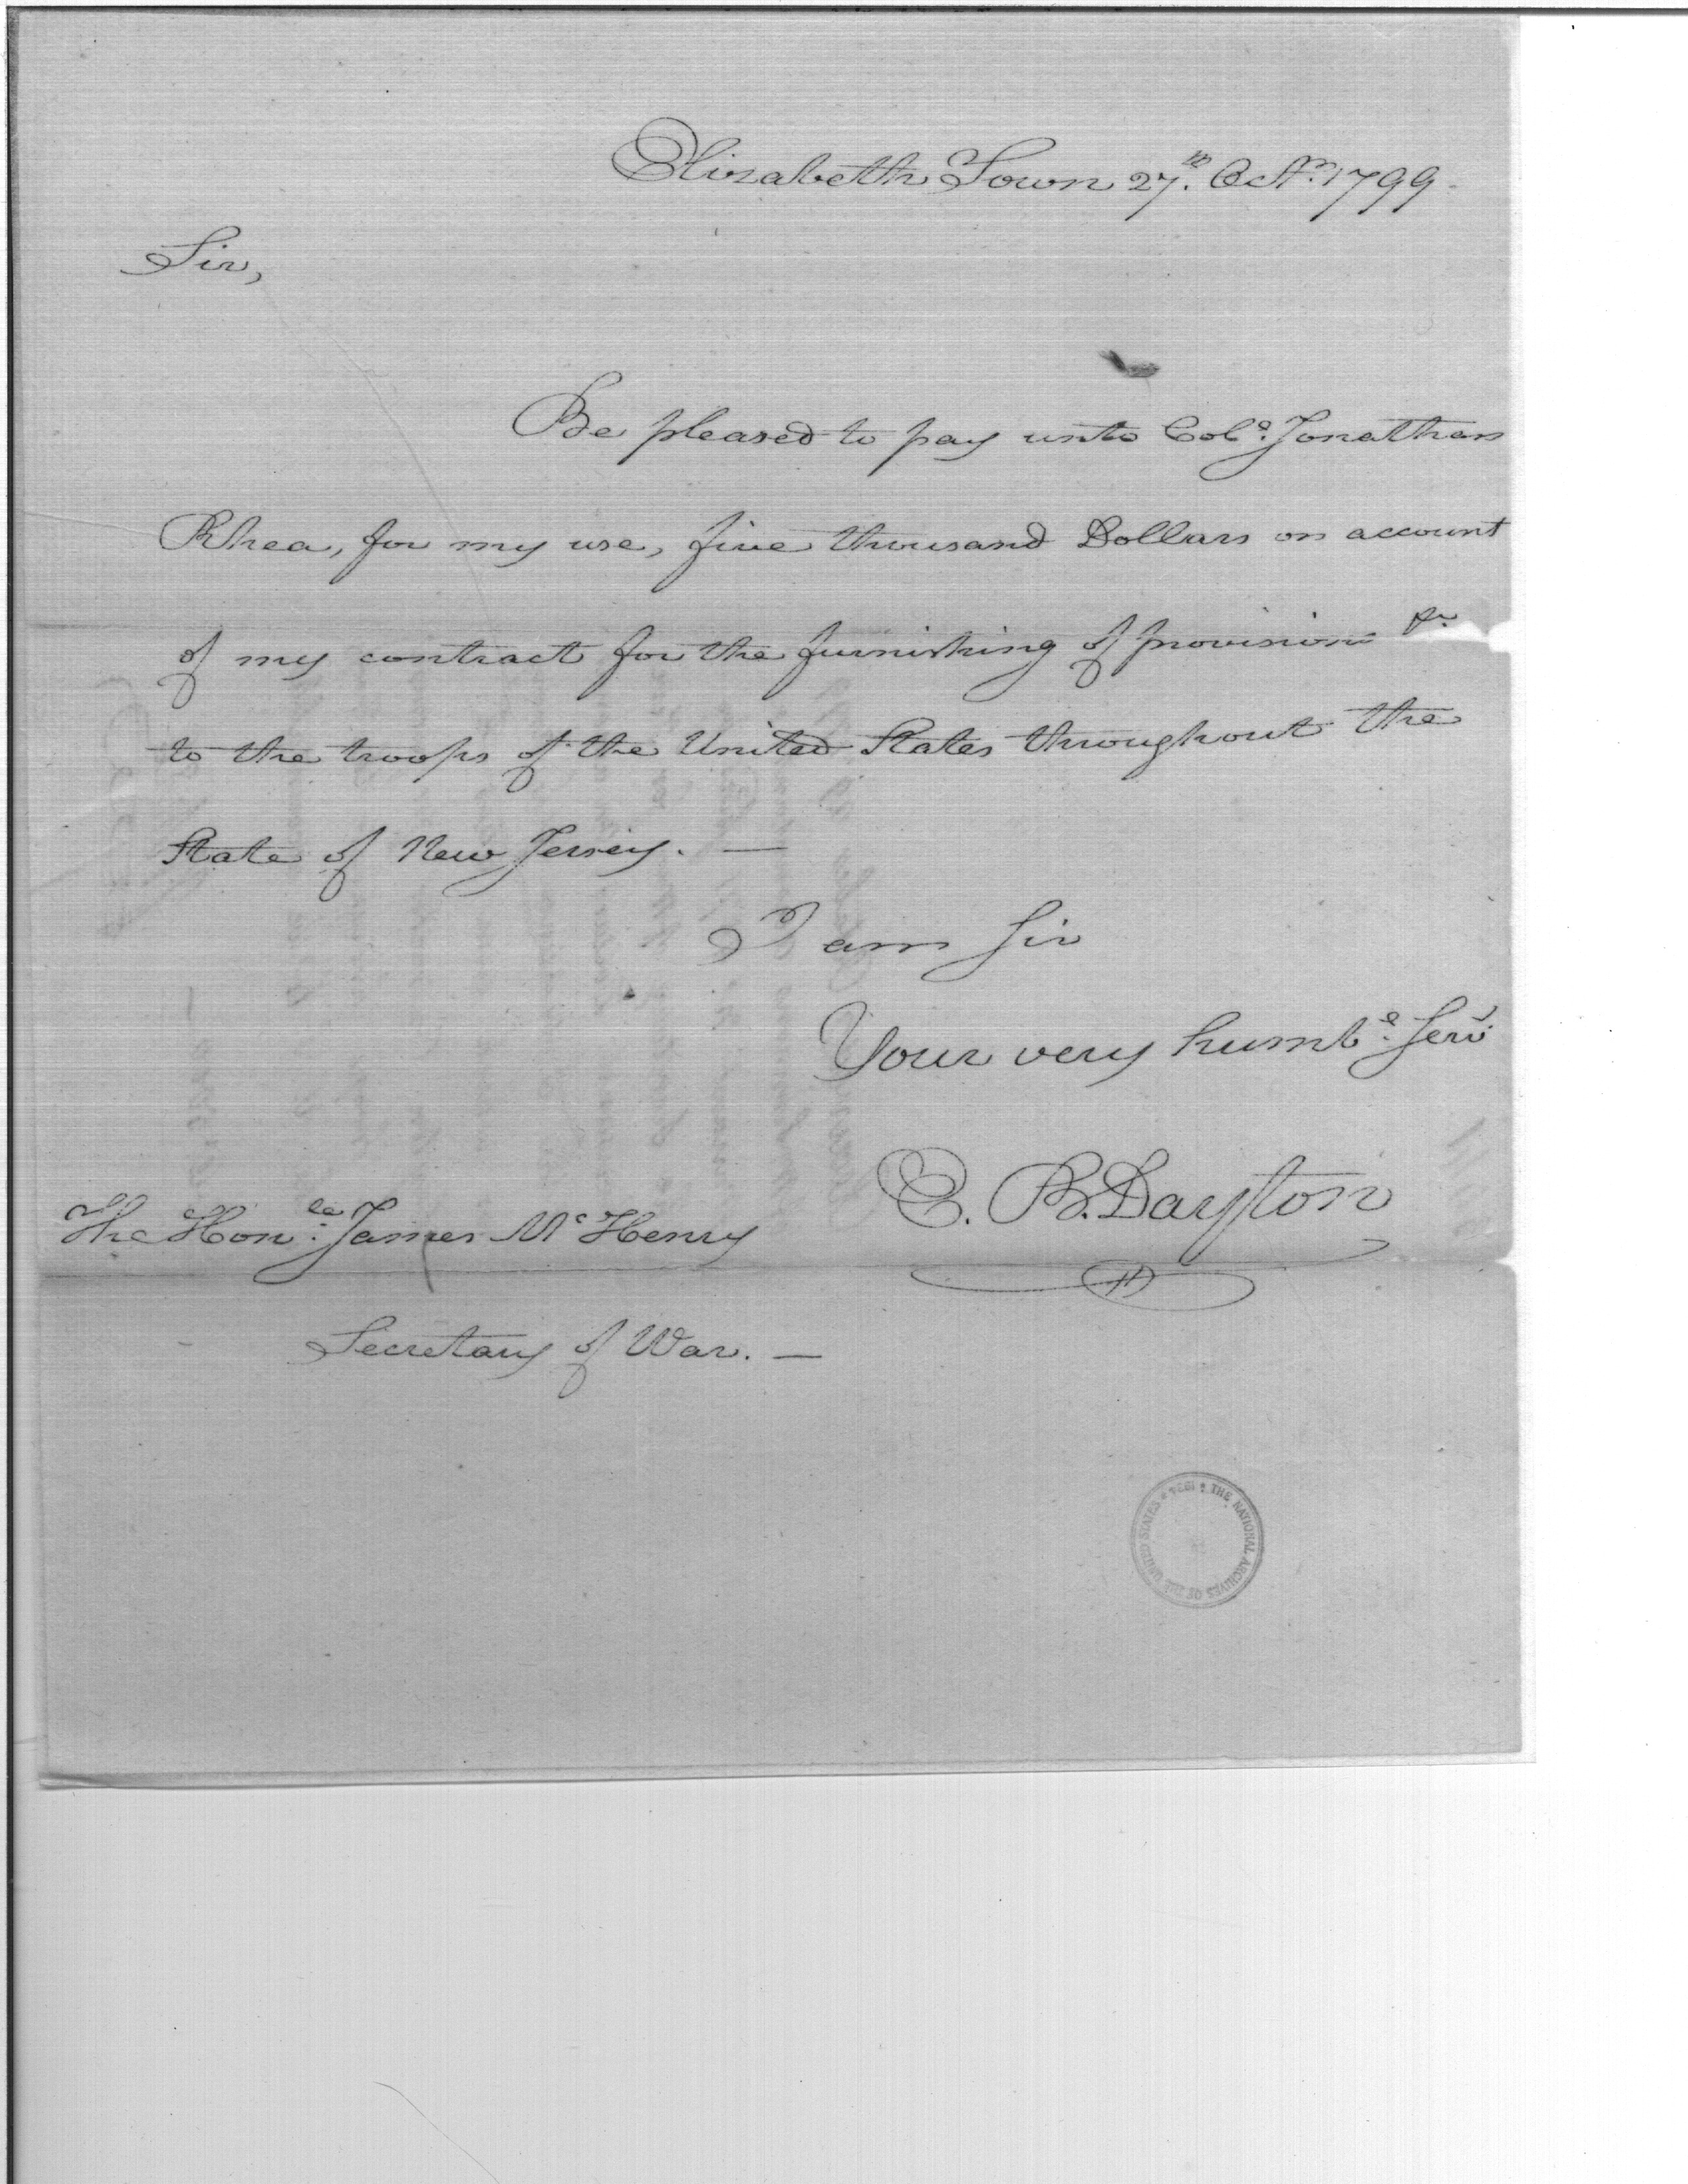 Elizabeth Town 27.th Octr. 1799.
Sir,
Be pleased to pay unto Colo. Jonathan
Rhea, for my use, five thousand Dollars on account
of my contract for the furnishing of provisions &c
to the troops of the United States throughout the
State of New Jersey. —
I am Sir
Your very humble. Servt
E. B. Dayton
The Honle. James McHenry
Secretary of War. —
THE NATIONAL ARCHIVES OF THE UNITED STATES * 1934 *